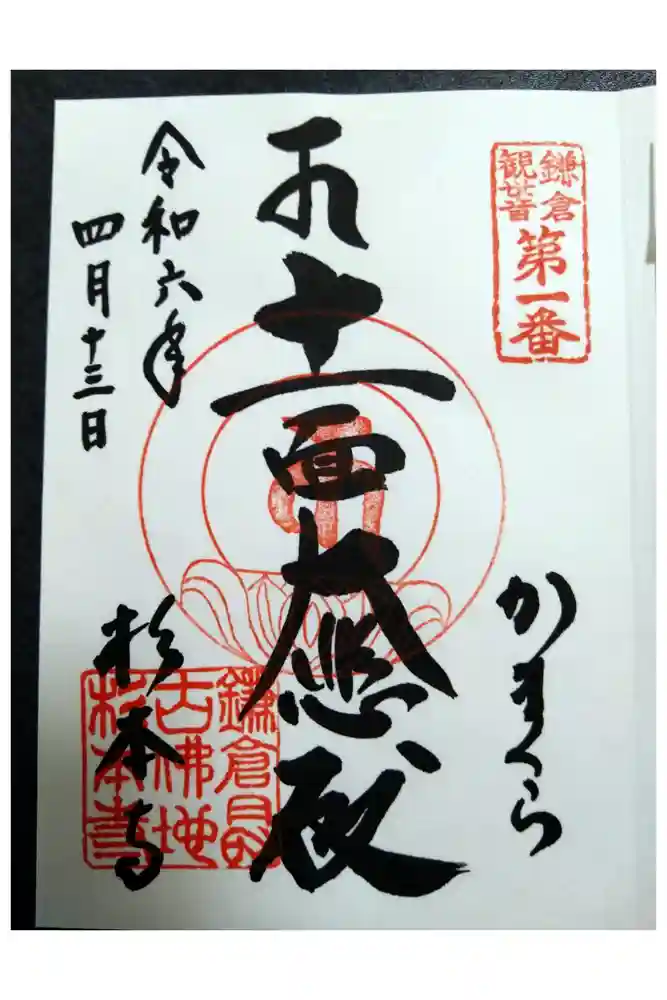 鎌倉
観音
第一番
かまくら
十一面大悲殿
令和六年
四月十三日
杉本寺
鎌倉最
古佛地
杉本寺